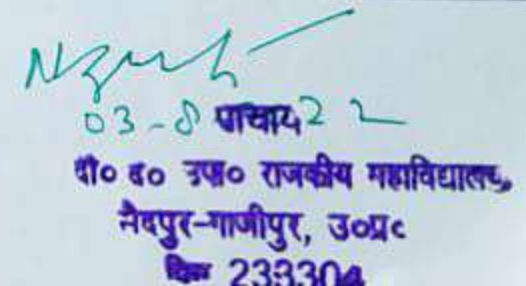 03-8 22
प्राचार्य
पी० द० उपा० राजकीय महाविद्यालय,
सैदपुर-गाजीपुर, उ०प्र०
पिन 233304